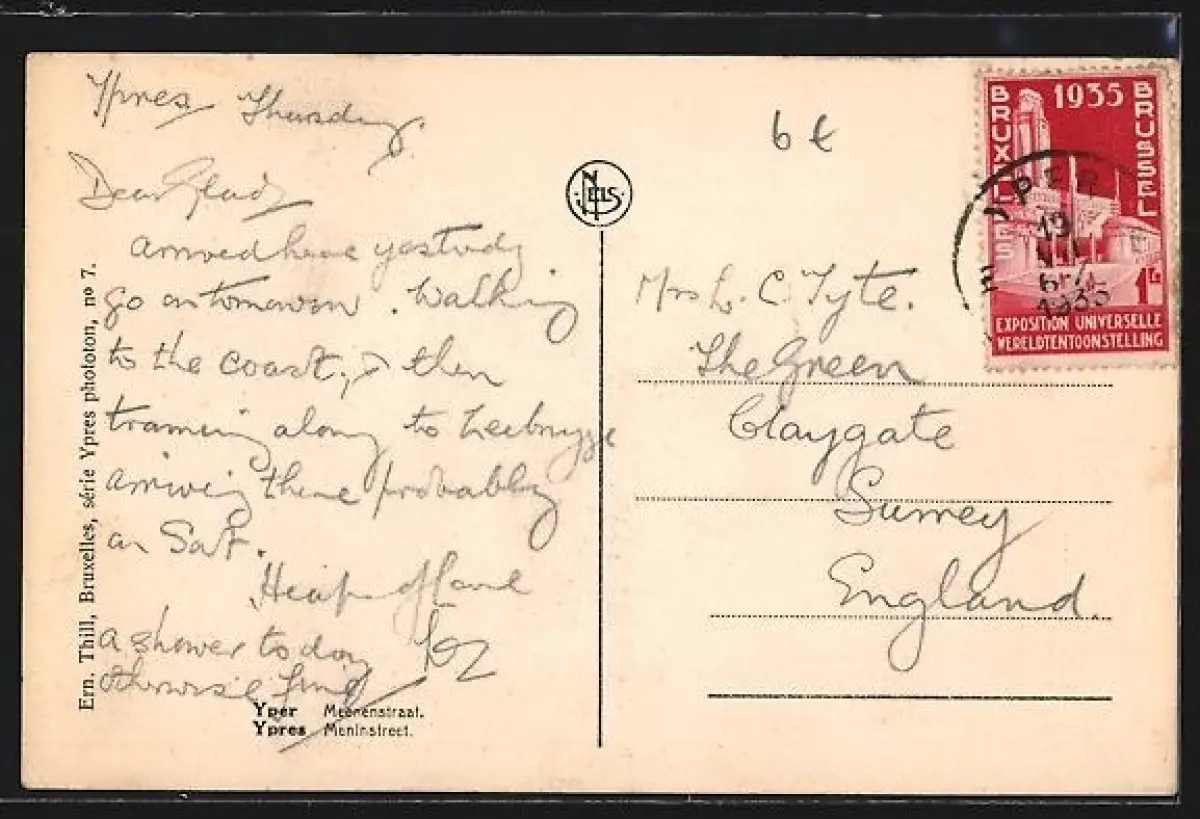 Ypres Thursday.
Dear Glad
arrived here yesterday
go on tomorrow. Walking
to the coast, & then
traming along to Zeebrugge
arriving there probably
on Sat.
Heaps of love
a shower to day
otherwise fine
6 €
NELS
Mrs L. C. Tyte.
The Green
Claygate
Surrey
England.
1935
BRUXELLES
BRUSSEL
EXPOSITION UNIVERSELLE
WERELDTENTOONSTELLING
YPER
19
1935
Ern. Thill, Bruxelles, série Ypres phototon, nº 7.
Yper Meenenstraat.
Ypres Meninstreet.